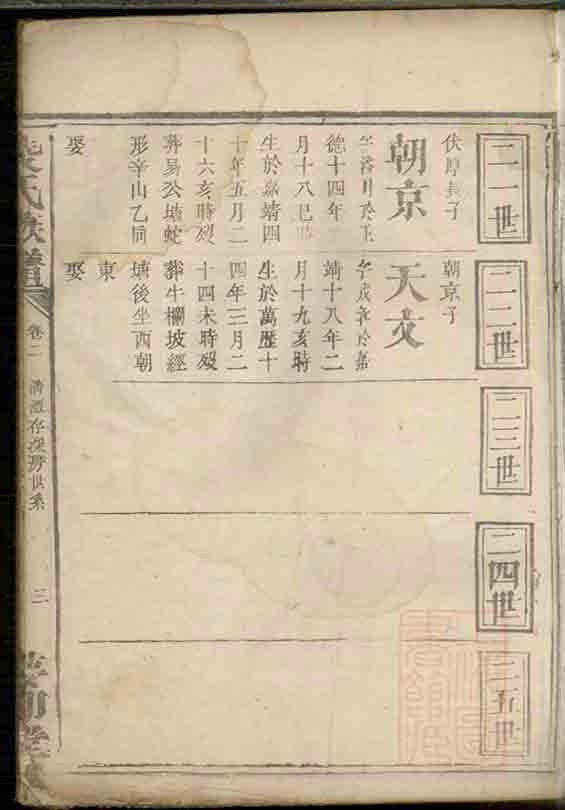 二一世
伏厚長子
朝京
德十四年
月十八巳時
生於嘉靖四
十年五月二
十六亥時歿
葬易公塘蛇
形辛山乙向
娶
二二世
朝京子
天文
靖十八年二
月十九亥時
生於萬歷十
四年三月二
十四未時歿
葬牛欄坡經
塘後坐西朝
東
娶
二三世
二四世
二五世
氏族譜
卷二
世系
三